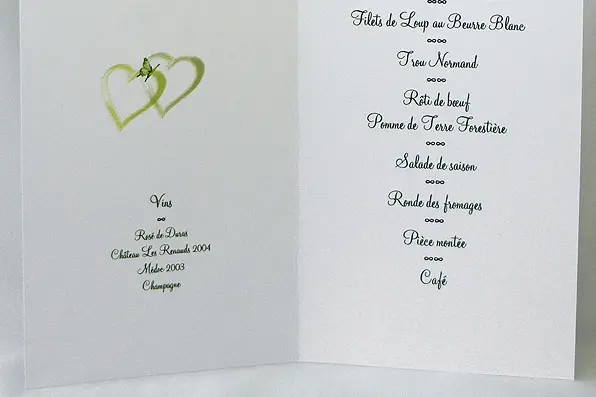 Vins
Rosé de Duras
Château Les Renauds 2004
Médoc 2003
Champagne
Filets de Loup au Beurre Blanc
Trou Normand
Rôti de bœuf
Pomme de Terre Forestière
Salade de saison
Ronde des fromages
Pièce montée
Café